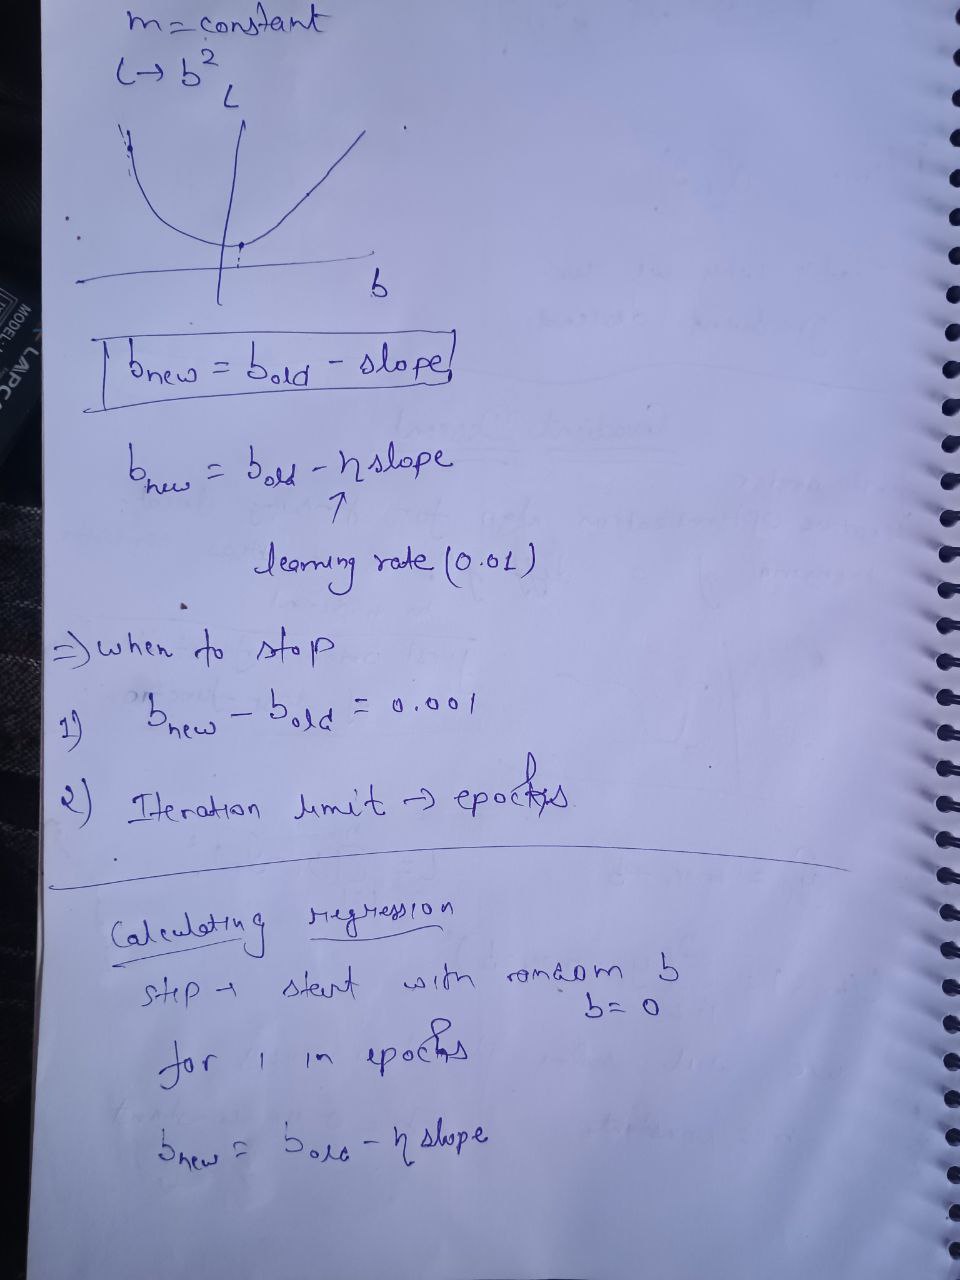 m = constant
L → b²
L
b
bnew = bold - slope
bnew = bold - η slope
↑
learning rate (0.01)
⇒ when to stop
1) bnew - bold = 0.001
2) Iteration limit → epochs
Calculating regression
step → start with random b
b = 0
for i in epochs
bnew = bold - η slope
MODEL
LAPC